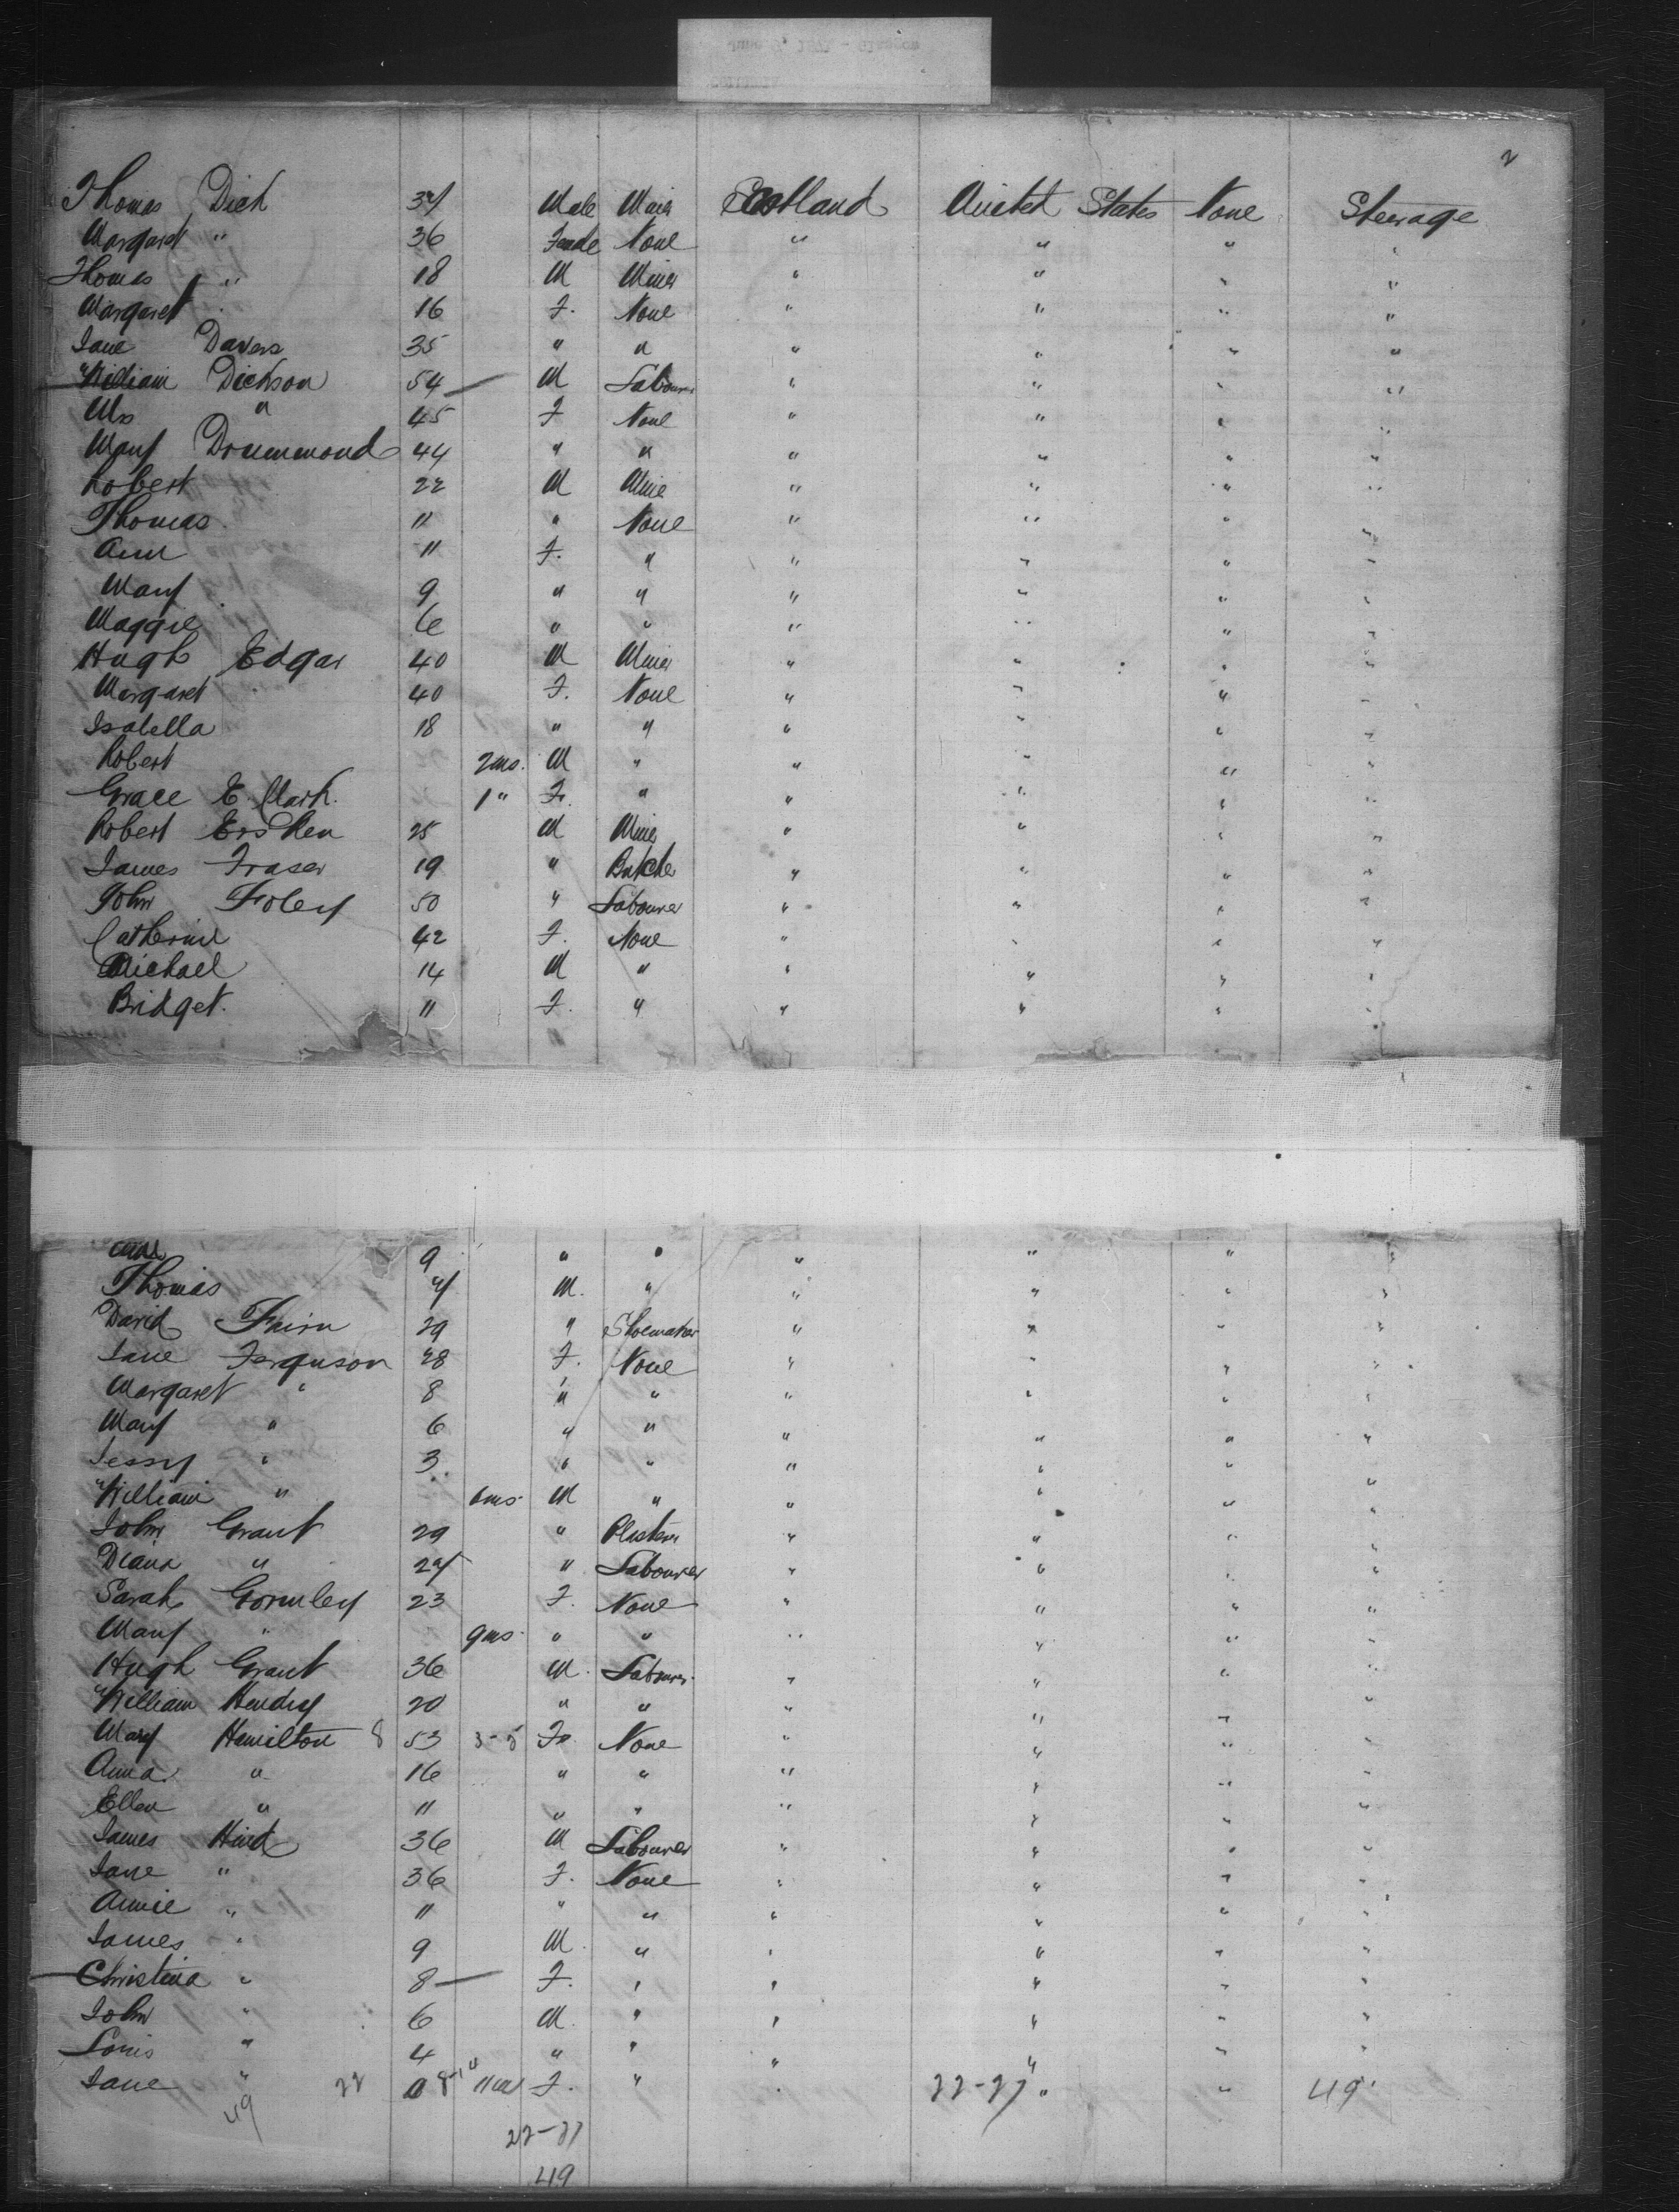 2
Thomas Dick 34 Male Miner Scotland United States None Steerage
Margaret " 36 Female None " " " "
Thomas " 18 M Miner " " " "
Margaret 16 F. None " " " "
Jane Davers 35 " " " " " "
William Dickson 54 M Labourer " " " "
Mrs " 45 F None " " " "
Mary Drummond 44 " " " " " "
Robert 22 M Mine " " " "
Thomas 11 " None " " " "
Ann 11 F. " " " " "
Mary 9 " " " " " "
Maggie 6 " " " " " "
Hugh Edgar 40 M Miner " " " "
Margaret 40 F. None " " " "
Isabella 18 " " " " " "
Robert 2ms. M " " " " "
Grace E. Clark. 1" F. " " " " "
Robert Ersken 25 M Miner " " " "
James Fraser 19 " Butcher " " " "
John Foley 50 " Labourer " " " "
Catherine 42 F. None " " " "
Michael 14 M " " " " "
Bridget. 11 F. " " " " "
9 " " " " " "
Thomas M. " " " " "
David 29 " Shoemaker " " " "
Jane Ferguson 28 F. None " " " "
Margaret " 8 " " " " " "
Mary " 6 " " " " " "
Jessy " 3 " " " " " "
William " 6ms. M " " " " "
John Grant 29 " Plasterer " " " "
" 24 " Labourer " " " "
Sarah Gormley 23 F. None " " " "
Mary " 9ms. " " " " " "
Hugh Grant 36 M. Labourer " " " "
William Hendry 20 " " " " " "
Mary Hamilton 8 53 3-5 F. None " " " "
Anna " 16 " " " " " "
Ellen " 11 " " " " " "
James Hind 36 M Labourer " " " "
Jane " 36 F. None " " " "
Annie " 11 " " " " " "
James " 9 M. " " " " "
Christina " 8 F. " " " " "
John " 6 M. " " " " "
Louis " 4 " " " " " "
Jane " 22 F. " " 22-27 " " 49
49
22-27
49